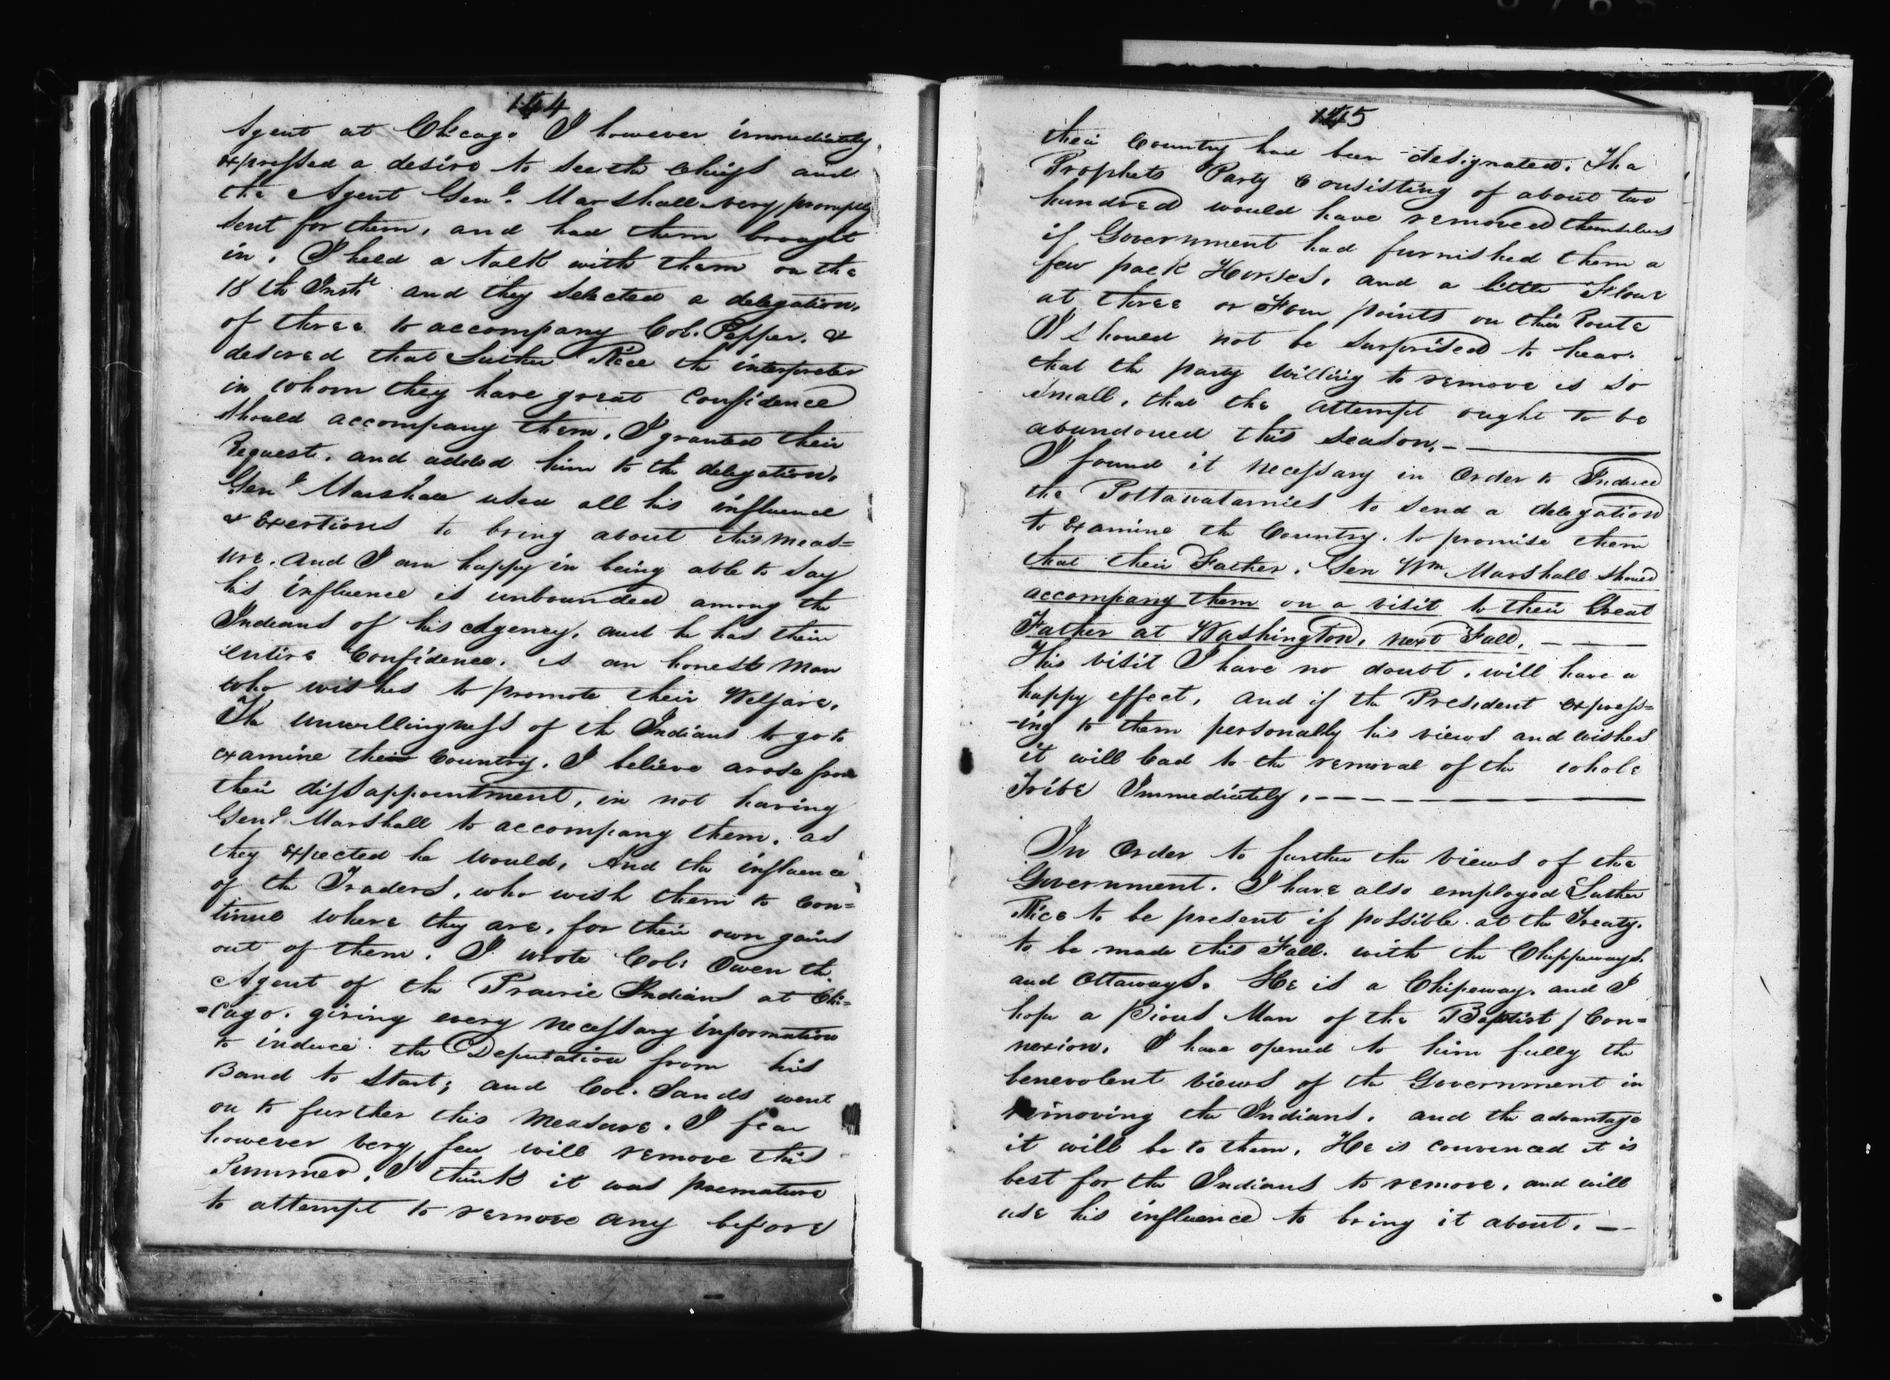 144
Agent at Chicago I however immediately
expressed a desire to see the chiefs and
the Agent Genl. Marshall very promptly
sent for them, and had them brought
in. I held a talk with them on the
18th Inst. and they selected a delegation,
of three to accompany Col. Pepper, &
desired that Luther Rice the interpreter
in whom they have great Confidence
should accompany them, I granted their
Request, and added him to the delegation.
Genl Marshall used all his influence
& Exertions to bring about this meas=
ure. And I am happy in being able to say
his influence is unbounded among the
Indians of his Agency, and he has their
entire Confidence, is an honest man
who wishes to promote their Welfare.
The unwillingness of the Indians to go to
examine their Country, I believe arose from
their dissappointment, in not having
Genl. Marshall to accompany them, as
they expected he would, And the influence
of the Traders, who wish them to Con=
tinue where they are, for their own gains
out of them. I wrote Col: Owen the
Agent of the Prairie Indians at Chi=
=cago. giving every necessary information
to induce the Deputation from his
Band to start; and Col. Sands went
on to further this measure. I fear
however very few will remove this
Summer, I think it was premature
to attempt to remove any before
145
their Country had been designated. The
Prophets Party Consisting of about two
hundred would have removed themselves
if Government had furnished them a
few pack Horses, and a little Flour
at three or Four points on their Route
I should not be surprised to hear
that the party willing to remove is so
small, that the attempt ought to be
abandoned this season.
I found it necessary in Order to Induce
the Pottawatamies to send a delegation
to Examine the Country. to promise them
that their Father. Gen Wm Marshall should
accompany them on a visit to their Great
Father at Washington, next Fall.
This visit I have no doubt, will have a
happy effect, and if the President express=
-ing to them personally his views and wishes
it will lead to the removal of the whole
Tribe Immediately.
In Order to further the views of the
Government. I have also employed Luther
Rice to be present if possible at the Treaty.
to be made this Fall. with the Chippeways
and Ottaways. He is a Chipeway. and I
hope a Pious Man of the Baptist Con=
nexion. I have opened to him fully the
benevolent views of the Government in
removing the Indians. and the advantage
it will be to them. He is convinced it is
best for the Indians to remove, and will
use his influence to bring it about.